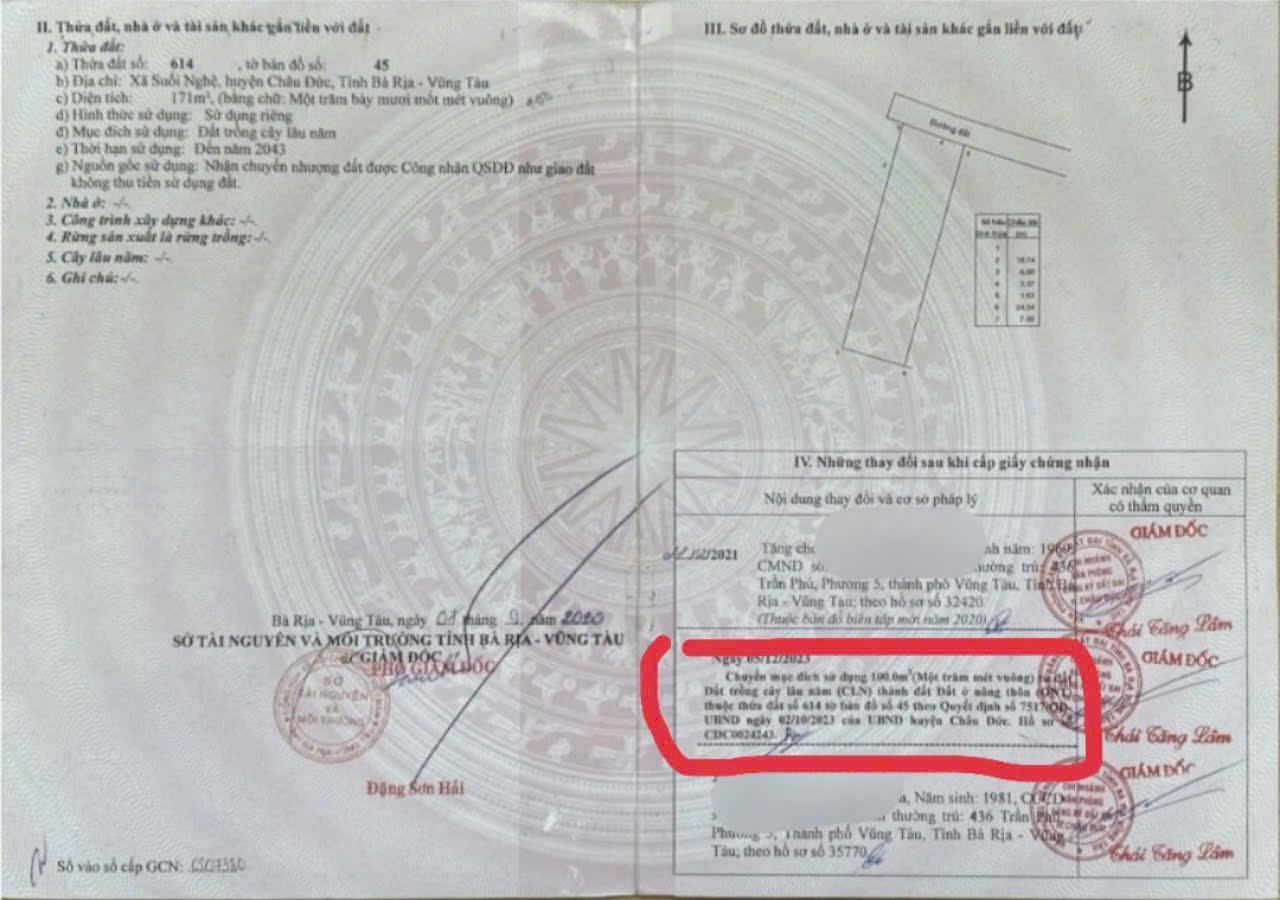 II. Thửa đất, nhà ở và tài sản khác gắn liền với đất
1. Thửa đất:
a) Thửa đất số: 614 , tờ bản đồ số: 45
b) Địa chỉ: Xã Suối Nghệ, huyện Châu Đức, Tỉnh Bà Rịa - Vũng Tàu
c) Diện tích: 171m², (bằng chữ: Một trăm bảy mươi mốt mét vuông)
d) Hình thức sử dụng: Sử dụng riêng
đ) Mục đích sử dụng: Đất trồng cây lâu năm
e) Thời hạn sử dụng: Đến năm 2043
g) Nguồn gốc sử dụng: Nhận chuyển nhượng đất được Công nhận QSDĐ như giao đất
không thu tiền sử dụng đất.
2. Nhà ở: -/-
3. Công trình xây dựng khác: -/-
4. Rừng sản xuất là rừng trồng: -/-
5. Cây lâu năm: -/-
6. Ghi chú: -/-
Bà Rịa - Vũng Tàu, ngày 01 tháng 9 năm 2020
SỞ TÀI NGUYÊN VÀ MÔI TRƯỜNG TỈNH BÀ RỊA - VŨNG TÀU
GIÁM ĐỐC
PHÓ GIÁM ĐỐC
SỞ
TÀI NGUYÊN
VÀ
MÔI TRƯỜNG
Đặng Sơn Hải
Số vào sổ cấp GCN:
III. Sơ đồ thửa đất, nhà ở và tài sản khác gắn liền với đất
B
Đường đất
Số hiệu Chiều dài
1
2 18.74
3 6.00
4 5.37
5 1.63
6 24.34
7 7.00
IV. Những thay đổi sau khi cấp giấy chứng nhận
Nội dung thay đổi và cơ sở pháp lý
Xác nhận của cơ quan
có thẩm quyền
/2021 Tặng cho năm: 1960
CMND số thường trú: 436
Trần Phú, Phường 5, thành phố Vũng Tàu, Tỉnh Bà
Rịa - Vũng Tàu; theo hồ sơ số 32420.
(Thuộc bản đồ biên tập mới năm 2020)
GIÁM ĐỐC
Thái Tăng Lâm
Ngày 05/12/2023
Chuyển mục đích sử dụng 100.0m² (Một trăm mét vuông) từ đất
Đất trồng cây lâu năm (CLN) thành đất Đất ở nông thôn (ONT)
thuộc thửa đất số 614 tờ bản đồ số 45 theo Quyết định số 7517/QĐ-
UBND ngày 02/10/2023 của UBND huyện Châu Đức. Hồ sơ số
CDC0024243.
GIÁM ĐỐC
Thái Tăng Lâm
Năm sinh: 1981, CCCD
thường trú: 436 Trần Phú
Phường 5, Thành phố Vũng Tàu, Tỉnh Bà Rịa - Vũng
Tàu; theo hồ sơ số 35770
GIÁM ĐỐC
Thái Tăng Lâm